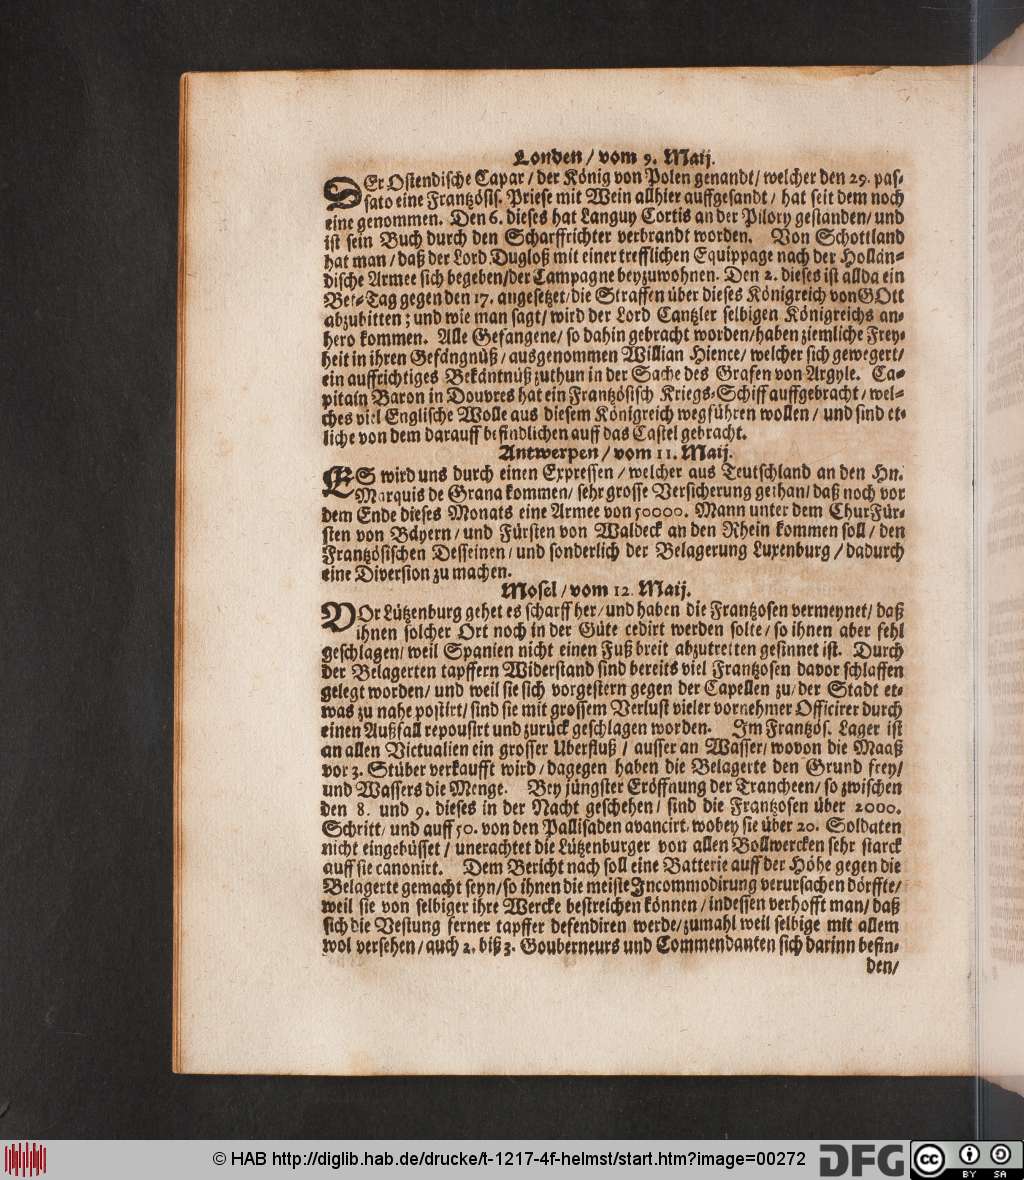 Londen / vom 9. Maij.
DEr Ostendische Capar / der König von Polen genandt / welcher den 29. pas-
sato eine Frantzösis. Priese mit Wein allhier auffgesandt / hat seit dem noch
eine genommen. Den 6. dieses hat Languy Cortis an der Pilory gestanden / und
ist sein Buch durch den Scharffrichter verbrandt worden. Von Schottland
hat man / daß der Lord Dugloß mit einer trefflichen Equippage nach der Hollän-
dische Armee sich begeben / der Campagne beyzuwohnen. Den 2. dieses ist allda ein
Bet-Tag gegen den 17. angesetzet / die Straffen über dieses Königreich von GOtt
abzubitten ; und wie man sagt / wird der Lord Cantzler selbigen Königreichs an-
hero kommen. Alle Gefangene / so dahin gebracht worden / haben ziemliche Frey-
heit in ihren Gefängnüß / ausgenommen Willian Hience / welcher sich gewegert /
ein auffrichtiges Bekäntnüß zuthun in der Sache des Grafen von Argyle. Ca-
pitain Baron in Douvres hat ein Frantzösisch Kriegs-Schiff auffgebracht / wel-
ches viel Englische Wolle aus diesem Königreich wegführen wollen / und sind et-
liche von dem darauff befindlichen auff das Castel gebracht.
Antwerpen / vom 11. Maij.
ES wird uns durch einen Expressen / welcher aus Teutschland an den Hn.
Marquis de Grana kommen / sehr grosse Versicherung gethan / daß noch vor
dem Ende dieses Monats eine Armee von 50000. Mann unter dem ChurFür-
sten von Bäyern / und Fürsten von Waldeck an den Rhein kommen soll / den
Frantzösischen Desseinen / und sonderlich der Belagerung Luxenburg / dadurch
eine Diversion zu machen.
Mosel / vom 12. Maij.
VOr Lützenburg gehet es scharff her / und haben die Frantzosen vermeynet / daß
ihnen solcher Ort noch in der Güte cedirt werden solte / so ihnen aber fehl
geschlagen / weil Spanien nicht einen Fuß breit abzutretten gesinnet ist. Durch
der Belagerten tapffern Widerstand sind bereits viel Frantzosen davor schlaffen
gelegt worden / und weil sie sich vorgestern gegen der Capellen zu / der Stadt et-
was zu nahe postirt / sind sie mit grossem Verlust vieler vornehmer Officirer durch
einen Außfall repousirt und zurück geschlagen worden. Im Frantzös. Lager ist
an allen Victualien ein grosser Uberfluß / ausser an Wasser / wovon die Maaß
vor 3. Stüber verkaufft wird / dagegen haben die Belagerte den Grund frey /
und Wassers die Menge. Bey jüngster Eröffnung der Trancheen / so zwischen
den 8. und 9. dieses in der Nacht geschehen / sind die Frantzosen über 2000.
Schritt / und auff 50. von den Pallisaden avancirt / wobey sie über 20. Soldaten
nicht eingebüsset / unerachtet die Lützenburger von allen Bollwercken sehr starck
auff sie canonirt. Dem Bericht nach soll eine Batterie auff der Höhe gegen die
Belagerte gemacht seyn / so ihnen die meiste Incommodirung verursachen dörffte /
weil sie von selbiger ihre Wercke bestreichen können / indessen verhofft man / daß
sich die Vestung ferner tapffer defendiren werde / zumahl weil selbige mit allem
wol versehen / auch 2. biß 3. Gouberneurs und Commendanten sich darinn befin-
den /
© HAB http://diglib.hab.de/drucke/t-1217-4f-helmst/start.htm?image=00272
DFG
cc
BY SA